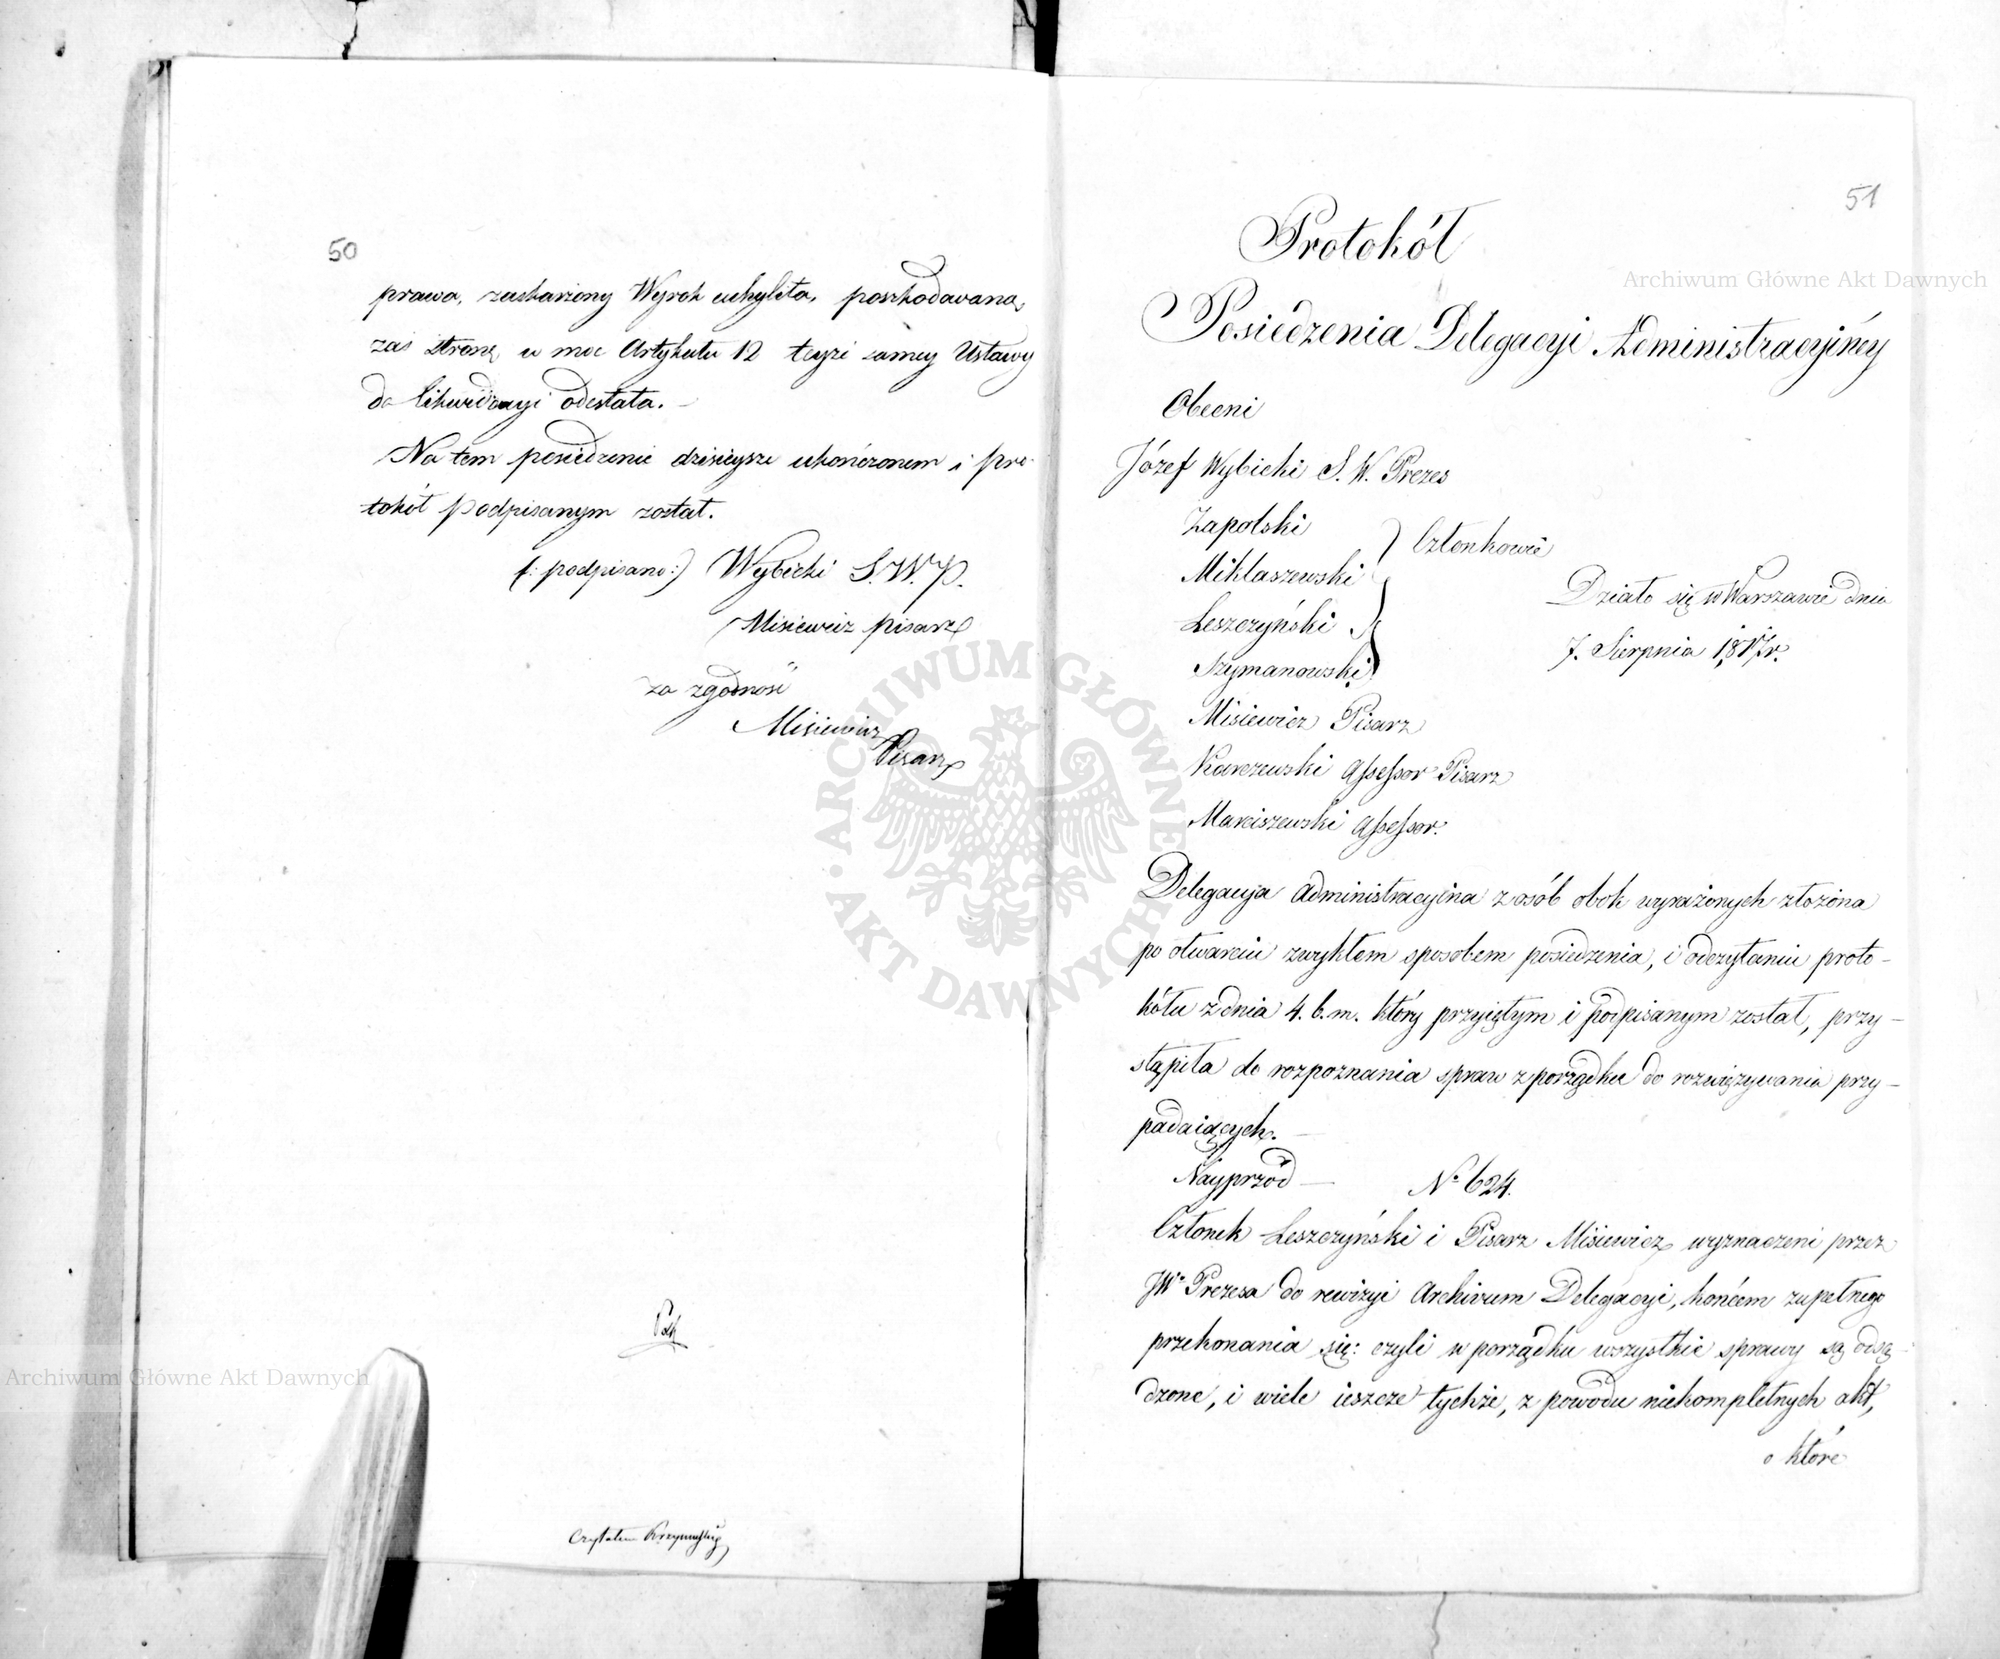 50
prawa, zaskarżony Wyrok uchyliła, poszkodowaną
zaś stronę w moc Artykułu 12 teyże samey Ustawy
do likwidacyi odesłała. –
Na tem posiedzenie dzisieysze ukończonem i pro-
tokół podpisanym został.
(: podpisano :) Wybicki S. W. P.
Misiewicz pisarz
za zgodność
Misiewicz
Pisarz
Czytałem
51
Protokół
Posiedzenia Delegacyi Administracyjney
Obecni
Józef Wybicki S. W. Prezes
Zapolski
Członkowie
Miklaszewski
Leszczyński
Szymanowski
Działo się w Warszawie dnia
7. Sierpnia 1817 r.
Misiewicz Pisarz
Karczewski Assessor Pisarz
Marciszewski Assessor.
Delegacyja Administracyjna z osób obok wyrażonych złożona
po otwarciu zwykłem sposobem posiedzenia, i odczytaniu proto-
kółu z dnia 4. b. m. który przyiętym i podpisanym został, przy-
stąpiła do rozpoznania spraw z porządku do rozwiązywania przy-
padaiących. –
Nayprzód – No 624.
Członek Leszczyński i Pisarz Misiewicz wyznaczeni przez
JW. Prezesa do rewizyi Archivum Delegacyi, końcem zupełnego
przekonania się: czyli w porządku wszystkie sprawy są odsą-
dzone, i wiele ieszcze tychże, z powodu niekompletnych akt,
o które
Archiwum Główne Akt Dawnych
Archiwum Główne Akt Dawnych
ARCHIWUM GŁÓWNE AKT DAWNYCH